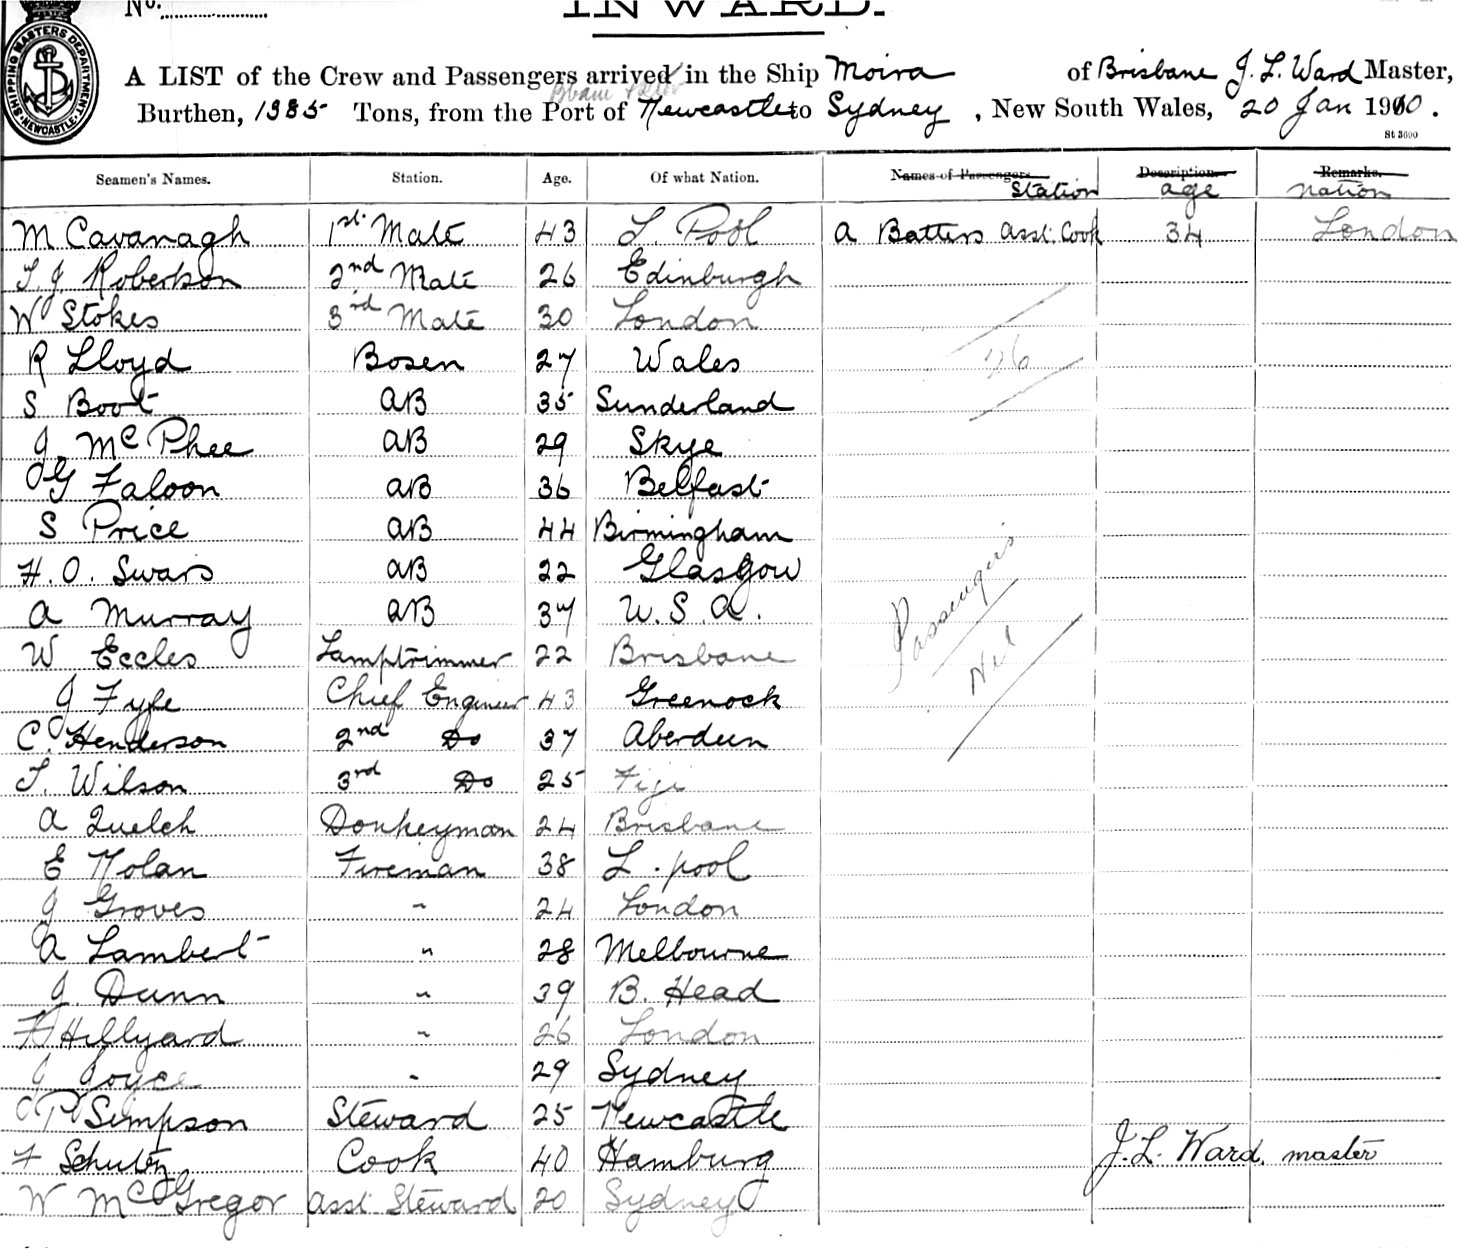 No.
INWARD.
SHIPPING MASTERS DEPARTMENT. NEWCASTLE.
A LIST of the Crew and Passengers arrived in the Ship Moira of Brisbane J. L. Ward Master,
Burthen, 1385 Tons, from the Port of Newcastle to Sydney, New South Wales, 20 Jan 1900.
St 3600
Seamen's Names. Station. Age. Of what Nation. Names of Passengers Station Description age Remarks. Nation
M Cavanagh 1st Mate 43 L. Pool A Batters Asst. Cook 34 London
T. J. Robertson 2nd Mate 26 Edinburgh
W Stokes 3rd Mate 30 London
R Lloyd Bosen 27 Wales 26
S Boot AB 35 Sunderland
J. McPhee AB 29 Skye
G Faloon AB 36 Belfast
S Price AB 44 Birmingham
H. O. Swars AB 22 Glasgow
A Murray AB 37 U. S. A. Passengers
W Eccles Lamptrimmer 22 Brisbane Nil
J Fyfe Chief Engineer 43 Greenock
C. Henderson 2nd Do 37 Aberdeen
T. Wilson 3rd Do 25 Fiji
A Quelch Donkeyman 24 Brisbane
E Nolan Fireman 38 L. pool
J Groves " 24 London
A Lambert " 28 Melbourne
J. Dunn " 39 B. Head
F Hillyard " 26 London
J Joyce " 29 Sydney
P Simpson Steward 25 Newcastle
F Schultz Cook 40 Hamburg J. L. Ward, master
W McGregor Asst. Steward 20 Sydney